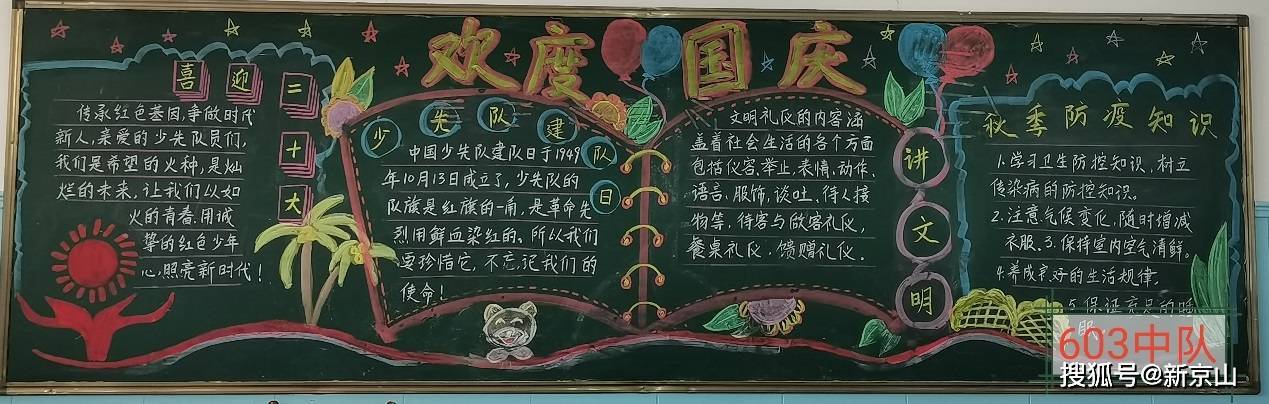 欢度国庆
喜迎二十大
传承红色基因,争做时代
新人,亲爱的少先队员们,
我们是希望的火种,是灿
烂的未来,让我们以如
火的青春,用诚
挚的红色少年
心,照亮新时代!
少先队建队日
中国少先队建队日于1949
年10月13日成立了,少先队的
队旗是红旗的一角,是革命先
烈用鲜血染红的、所以我们
要珍惜它,不忘记我们的
使命!
文明礼仪的内容涵
盖着社会生活的各个方面
包括仪容、举止、表情、动作、
语言、服饰、谈吐、待人接
物等,待客与做客礼仪、
餐桌礼仪、馈赠礼仪.
讲文明
秋季防疫知识
1.学习卫生防控知识,树立
传染病的防控知识。
2.注意气候变化,随时增减
衣服.3.保持室内空气清鲜。
4.养成良好的生活规律.
5.保证充足的睡
眠
603中队
搜狐号@新京山